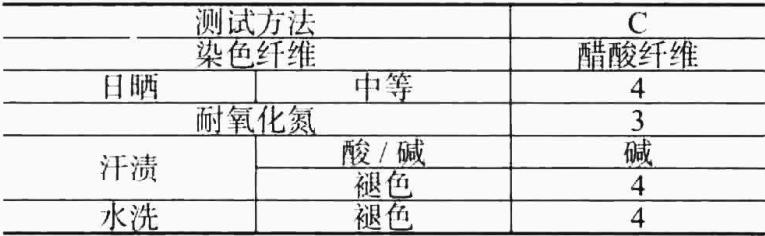 测试方法 C
染色纤维 醋酸纤维
日晒 中等 4
耐氧化氮 3
汗渍 酸 / 碱 碱
褪色 4
水洗 褪色 4